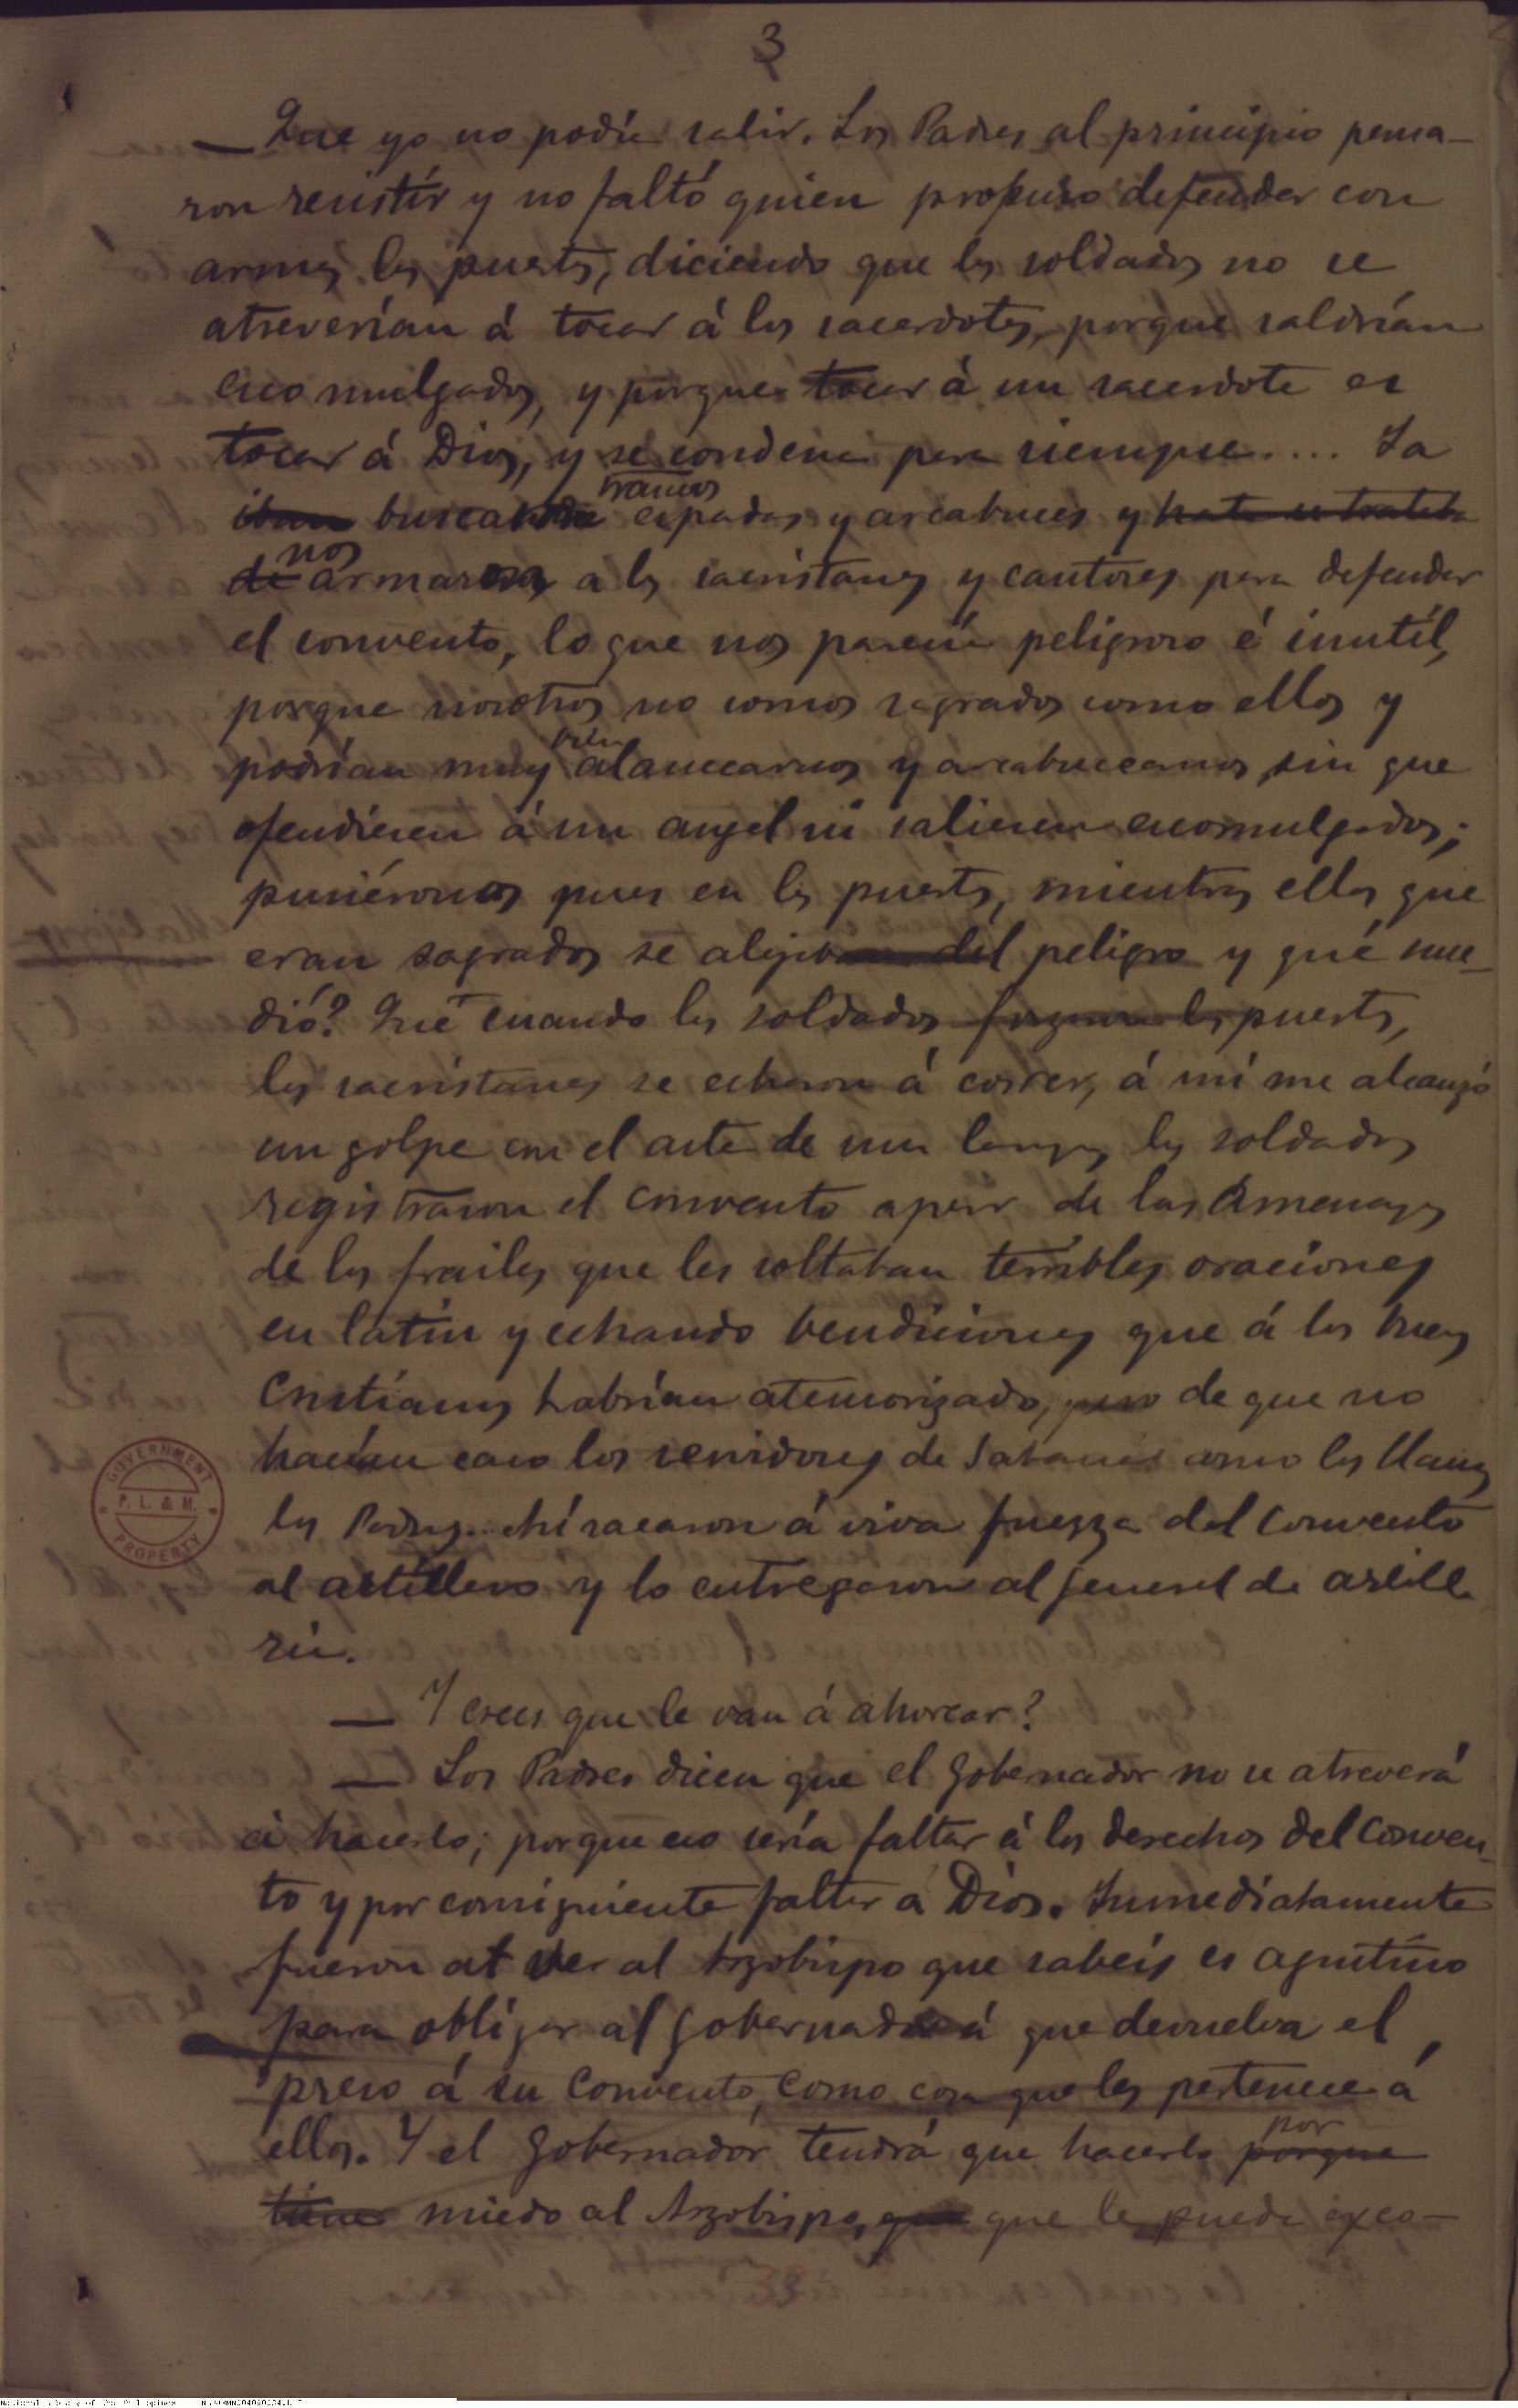 3
— Que yo no podía salir. Los Padres al principio pensa-
ron resistir y no faltó quien propuso defender con
armas las puertas, diciendo que los soldados no se
atreverían á tocar á los sacerdotes, porque saldrían
excomulgados, y porque tocar á un sacerdote es
tocar á Dios, y se condena para siempre.... Ya
iban buscando espadas y arcabuces y hasta se trataba
bamos
nos
de armaron a los sacristanes y cantores para defender
el convento, lo que nos parecía peligroso é inutil,
porque nosotros no somos sagrados como ellos y
bien
podrían muy alancearnos y arcabucearnos sin que
ofendiesen á un angel ni saliesen excomulgados;
pusiéronnos pues en las puertas, mientras ellos que
eran sagrados se alejaban del peligro y qué suce-
dió? Que cuando los soldados forzaron las puertas,
los sacristanes se echaron á correr, á mí me alcanzó
un golpe con el asta de una lanza, los soldados
registraron el convento a pesar de las amenazas
de los frailes que les soltaban terribles oraciones
en latin y echando bendiciones que á los buenos
Cristianos habrían atemorizado, pero de que no
hacían caso los servidores de Satanás como los llaman
los Padres. Ahí sacaron á viva fuerza del Convento
al artillero y lo entregaron al general de artille
ria.
— Y crees que le van á ahorcar?
— Los Padres dicen que el Gobernador no se atreverá
á hacerlo; porque eso sería faltar á los derechos del Conven-
to y por consiguiente faltar a Dios. Inmediatamente
fueron at ver al Arzobispo que sabeis es agustino
para obligar al Gobernador á que devuelva el
preso á su Convento, como cosa que les pertenece á
ellos. Y el Gobernador tendrá que hacerlo porque
por
tiene miedo al Arzobispo, que que le puede exco-
GOVERNMENT
P. L. & M.
PROPERTY